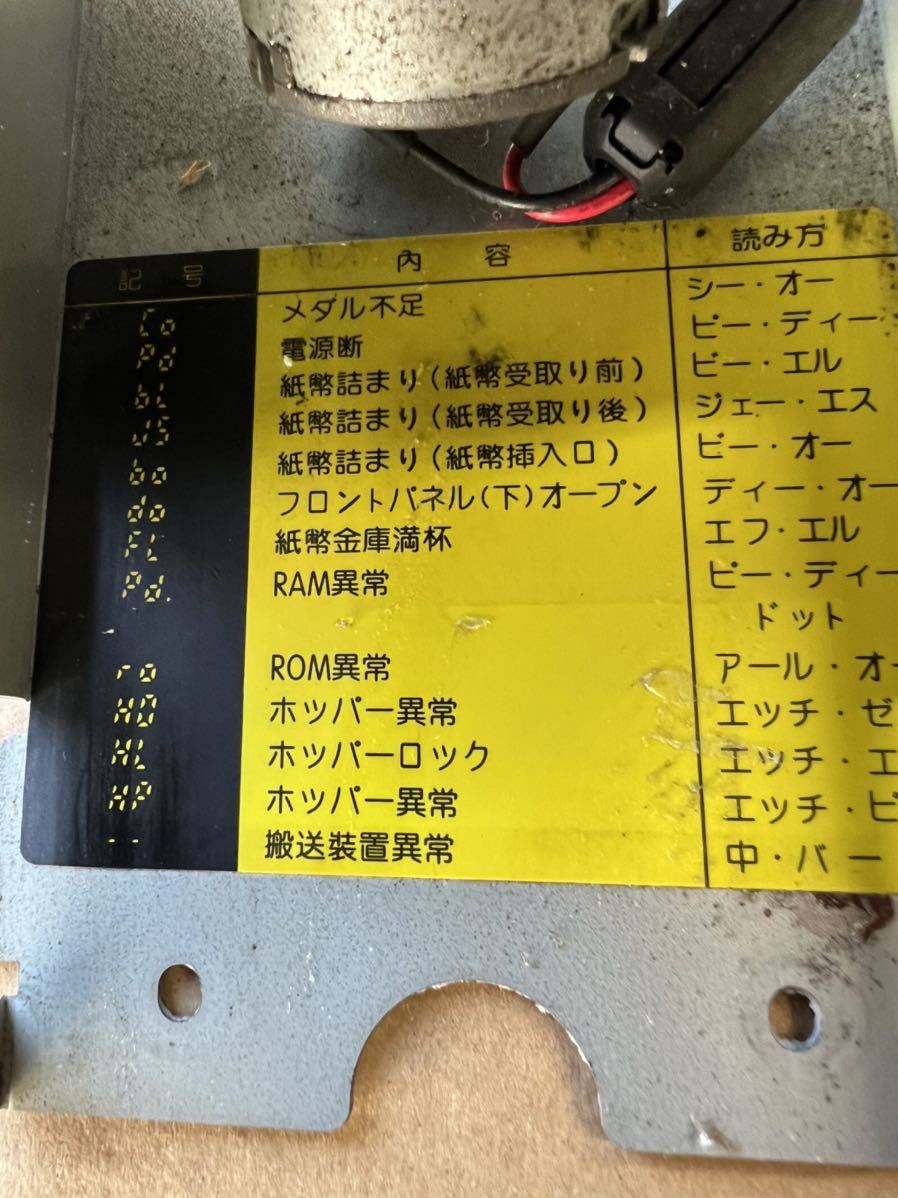 記号 内容 読み方
Co メダル不足 シー・オー
Pd 電源断 ピー・ディー
bL 紙幣詰まり(紙幣受取り前) ビー・エル
JS 紙幣詰まり(紙幣受取り後) ジェー・エス
bo 紙幣詰まり(紙幣挿入口) ビー・オー
do フロントパネル(下)オープン ディー・オー
FL 紙幣金庫満杯 エフ・エル
Pd. RAM異常 ピー・ディー
ドット
ro ROM異常 アール・オー
H0 ホッパー異常 エッチ・ゼ
HL ホッパーロック エッチ・エ
HP ホッパー異常 エッチ・ピ
-- 搬送装置異常 中・バー